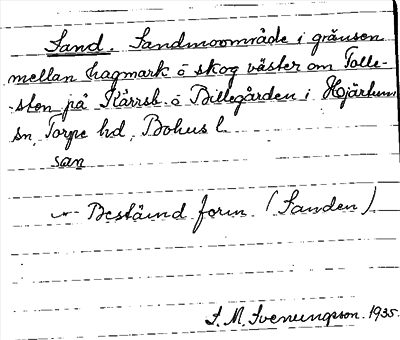 Sand. Sandmoområde i gränsen
mellan hagmark o skog väster om Tolle-
-sten på Kärrsb. o Billegården i Hjärtum
sn, Torpe hd, Bohus l.
san
Bestämd form (Sanden)
S. M. Svenungsson. 1935.